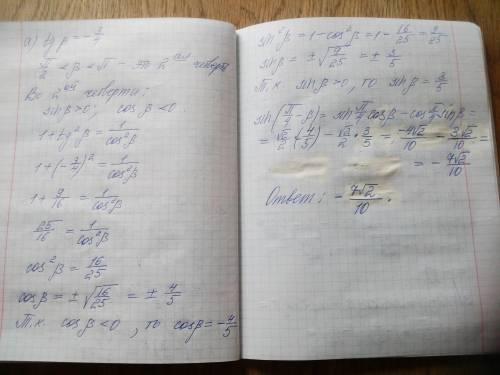 а) tg β = -3/4
π/2 < β < π - это 2ой четверть
Во 2ой четверти:
sin β > 0; cos β < 0.
1 + tg²β = 1/cos²β
1 + (-3/4)² = 1/cos²β
1 + 9/16 = 1/cos²β
25/16 = 1/cos²β
cos²β = 16/25
cos β = ± √(16/25) = ± 4/5
Т.к. cos β < 0, то cos β = -4/5
sin²β = 1 - cos²β = 1 - 16/25 = 9/25
sin β = ± √(9/25) = ± 3/5
Т.к. sin β > 0, то sin β = 3/5
sin(π/4 - β) = sin π/4 cos β - cos π/4 sin β =
= √2/2 · (-4/5) - √2/2 · 3/5 = -4√2/10 - 3√2/10 =
= - 7√2/10
Ответ: - 7√2/10.